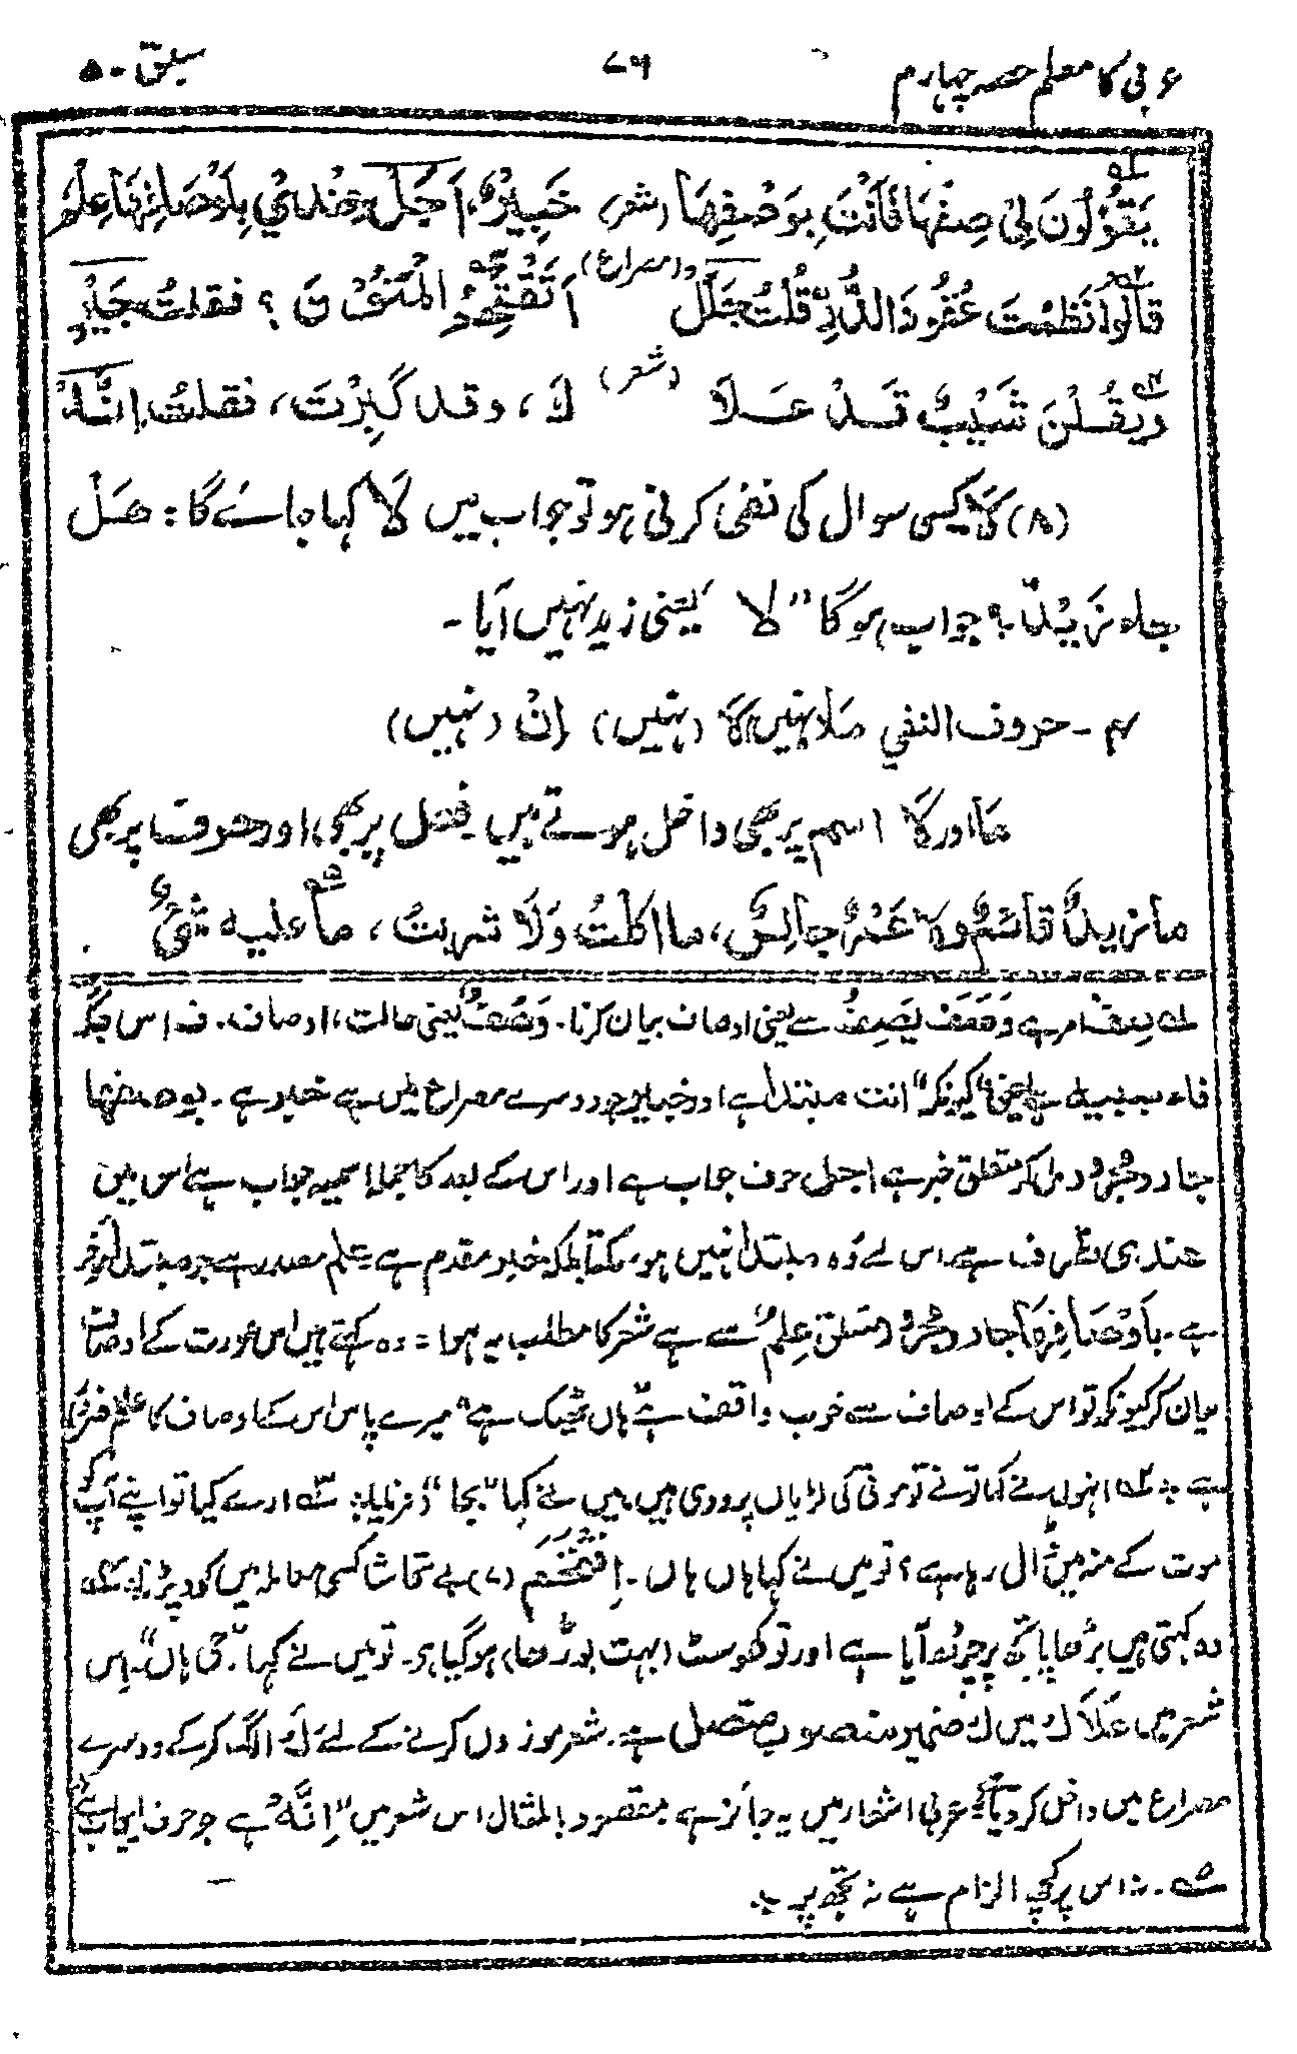 عربی کا معلم حصہ چہارم ۷۶ سبق ۵۰
يَقُوْلُوْنَ لِيْ صِفْهَا فَاَنْتَ بِوَصْفِهَا (شعر) خَبِيْرٌ، اَجَلْ عِنْدِيْ بِاَوْصَافِهَا عِلْمُ
قَالُوْا نَظَمْتَ عُقُوْدَ الدُّرِّ قُلْتُ جَلَلْ (مصراع) اَتَقْتَحِمُ الْمَنُوْنَ ؟ فقلتُ جَيْرِ
وَيَقُلْنَ شَيْبٌ قَدْ عَلَا (شعر) كَ، وقد كَبِرْتَ، فقلتُ اِنَّهْ
(۸) لَا کسی سوال کی نفی کرنی ہو تو جواب میں لَا کہا جائے گا: هَلْ
جاء زَيْدٌ؟ جواب ہوگا "لا" یعنی زید نہیں آیا۔
۴ ۔ حروف النفي مَا (نہیں) لَا (نہیں) اِنْ (نہیں)
مَا اور لَا اسم پر بھی داخل ہوتے ہیں فعل پر بھی، اور حرف پر بھی
ما زيدٌ قائمٌ ولا عَمْرٌو جالِسٌ، ما اكلتُ وَلَا شربتُ، ما عليه شَيْءٌ
لہ صِفْ امر ہے وَصَفَ يَصِفُ سے یعنی اوصاف بیان کرنا۔ وَصْفٌ یعنی حالت، اوصاف۔ ف اس جگہ
فاء سببیہ ہے یعنی "کیونکہ" انت مبتدا ہے اور خبیر جو دوسرے مصراع میں ہے خبر ہے۔ بوصفها
جار و مجرور مل کر متعلق خبر ہے اجل حرف جواب ہے اور اس کے بعد کا جملہ اسمیہ جواب ہے اس میں
عندی ظرف ہے، اس لئے وہ مبتدا نہیں ہو سکتا بلکہ خبر مقدم ہے علم مصدر ہے جو مبتدا مؤخر
ہے۔ بِاَوْصَافِهَا جار و مجرور متعلق عِلْمٌ سے ہے شعر کا مطلب یہ ہوا: وہ کہتے ہیں اس عورت کے اوصاف
بیان کر کیونکہ تو اس کے اوصاف سے خوب واقف ہے ہاں ٹھیک ہے میرے پاس اس کے اوصاف کا علم ضرور
ہے ÷ ۲ہ انہوں نے کہا تو نے تو موتی کی لڑیاں پرو دی ہیں، میں نے کہا "بجا" فرمایا۔ ۳ہ ارے کیا تو اپنے آپ کو
موت کے منہ میں ڈال رہا ہے؟ تو میں نے کہا ہاں ہاں۔ اِقْتَحَمَ (۷) بے تحاشا کسی معاملہ میں کود پڑنا ۴ہ
وہ کہتی ہیں بڑھاپا تجھ پر چڑھ آیا ہے اور تو کھوسٹ (بہت بوڑھا) ہو گیا ہے۔ تو میں نے کہا "جی ہاں"۔ اس
شعر میں عَلَاكَ میں كَ ضمیر منصوب متصل ہے۔ شعر موزوں کرنے کے لئے كَ الگ کر کے دوسرے
مصراع میں داخل کر دیا ہے عربی اشعار میں یہ جائز ہے مقصود بالمثال اس شعر میں "اِنَّهْ" ہے جو حرف ایجاب ہے
۵ہ ۔ نہ اس پر کچھ الزام ہے نہ تجھ پر ÷